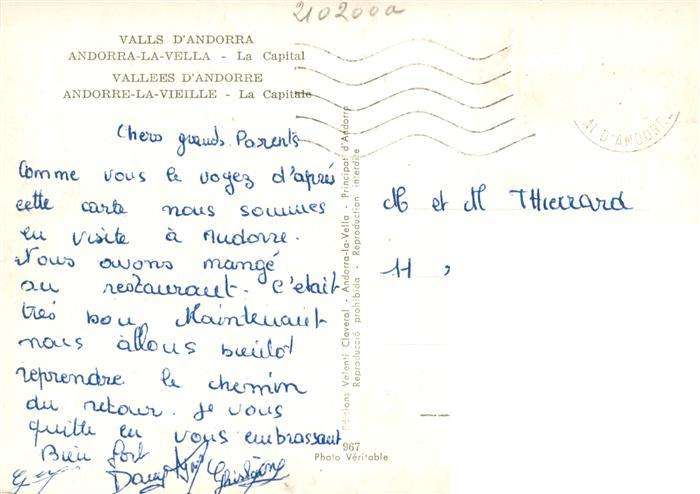 210200a
VALLS D'ANDORRA
ANDORRA-LA-VELLA - La Capital
VALLEES D'ANDORRE
ANDORRE-LA-VIEILLE - La Capitale
Chers grands Parents
Comme vous le voyez d'après
cette carte nous sommes
en visite à Andorre.
Nous avons mangé
au restaurant. C'était
très bon Maintenant
nous allons bientôt
reprendre le chemin
du retour. Je vous
quitte en vous embrassant
Bien fort
Ghislaine
Editions Valenti Claverol - Andorra-la-Vella - Principat d'Andorra
Reproducció prohibida - Reproduction interdite
967
Photo Véritable
M et M THIERRARD
11 ,